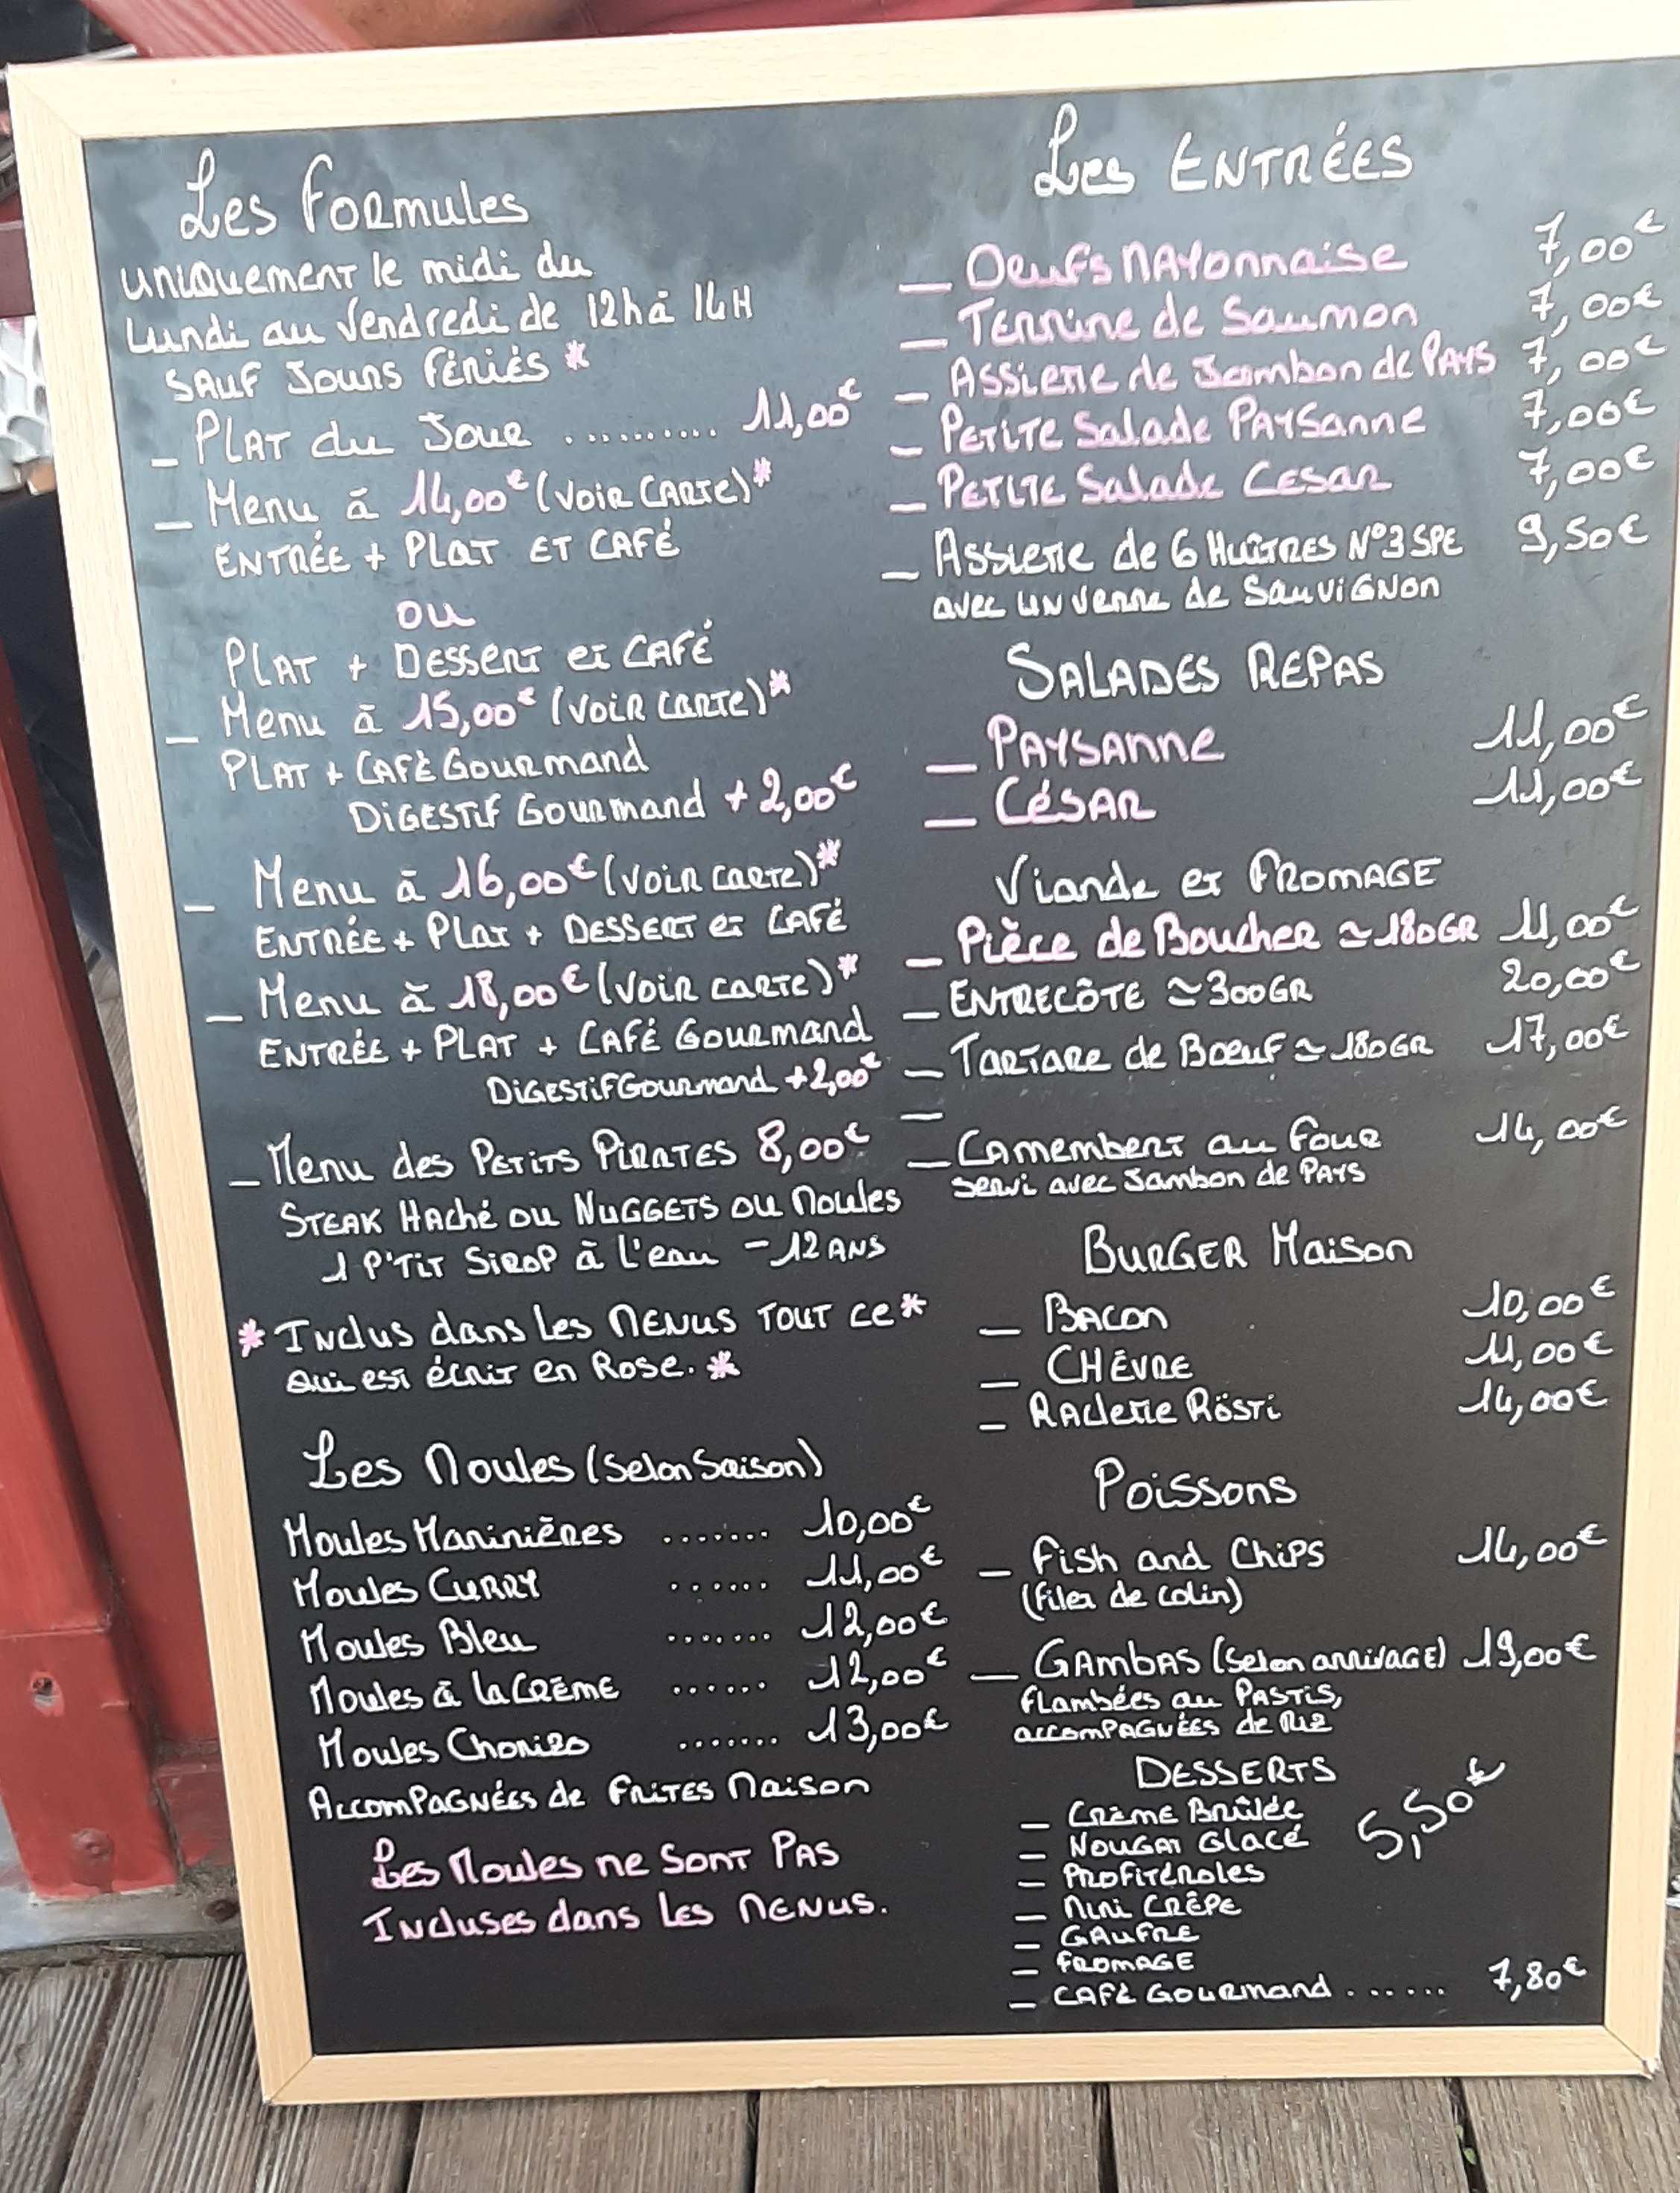 Les Formules
uniquement le midi du
Lundi au Vendredi de 12h à 14H
sauf Jours Fériés *
_ Plat du Jour .......... 11,00€
_ Menu à 14,00€ (voir carte)*
Entrée + Plat et Café
ou
Plat + Dessert et Café
_ Menu à 15,00€ (voir carte)*
Plat + Cafè Gourmand
Digestif Gourmand + 2,00€
_ Menu à 16,00€ (voir carte)*
Entrée + Plat + Dessert et Café
_ Menu à 18,00€ (voir carte)*
Entrée + Plat + Café Gourmand
Digestif Gourmand + 2,00€
_ Menu des Petits Pirates 8,00€
Steak Haché ou Nuggets ou Moules
1 P'tit Sirop à l'eau - 12 ans
* Inclus dans les Menus tout ce *
qui est écrit en Rose. *
Les Moules (Selon Saison)
Moules Marinières ....... 10,00€
Moules Curry ...... 11,00€
Moules Bleu ....... 12,00€
Moules à la Crème ...... 12,00€
Moules Chorizo ....... 13,00€
Accompagnées de Frites Maison
Les Moules ne sont pas
Incluses dans les Menus.
Les Entrées
_ Oeufs Mayonnaise 7,00€
_ Terrine de Saumon 7,00€
_ Assiette de Jambon de Pays 7,00€
_ Petite Salade Paysanne 7,00€
_ Petite Salade Cesar 7,00€
_ Assiette de 6 Huîtres N°3 SPE 9,50€
avec un verre de Sauvignon
Salades Repas
_ Paysanne 11,00€
_ César 11,00€
Viande et Fromage
_ Pièce de Boucher ≃ 180gr 11,00€
_ Entrecôte ≃ 300gr 20,00€
_ Tartare de Boeuf ≃ 180gr 17,00€
_
_ Camembert au Four 14,00€
servi avec Jambon de Pays
Burger Maison
_ Bacon 10,00€
_ Chèvre 11,00€
_ Raclette Rösti 14,00€
Poissons
_ Fish and Chips 14,00€
(filet de colin)
_ Gambas (selon arrivage) 19,00€
flambées au Pastis,
accompagnées de Riz
Desserts
_ Crème Brûlée
_ Nougat Glacé 5,50€
_ Profiteroles
_ Mini Crêpe
_ Gaufre
_ Fromage
_ Café Gourmand ...... 7,80€